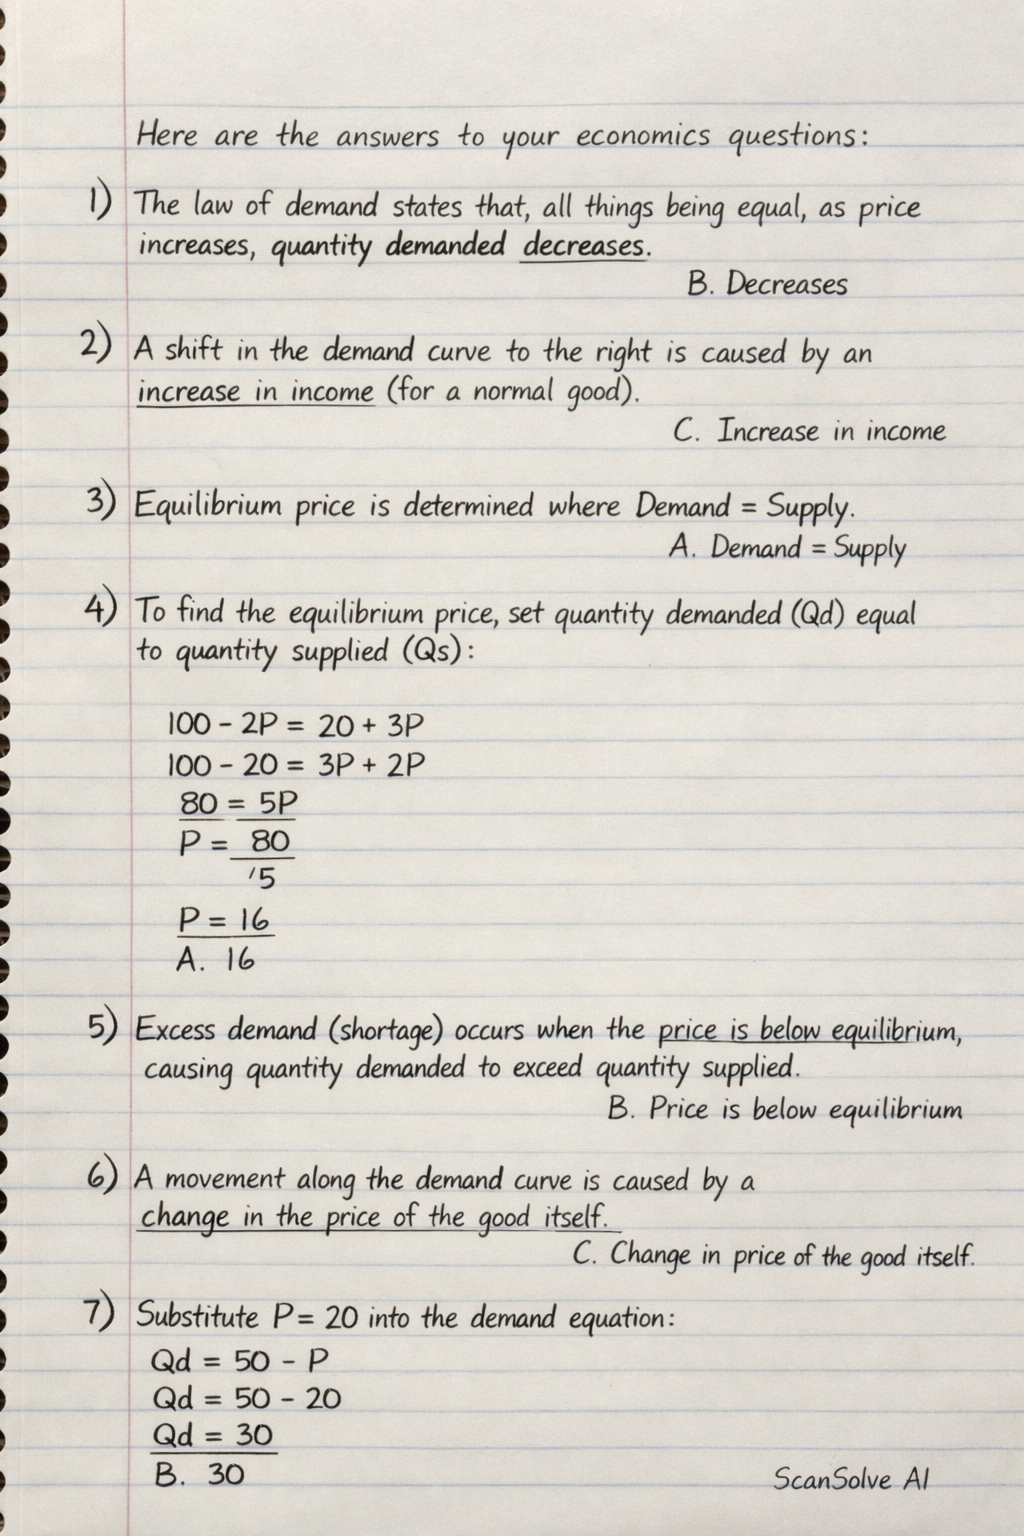 Here are the answers to your economics questions:
1) The law of demand states that, all things being equal, as price
increases, quantity demanded decreases.
B. Decreases
2) A shift in the demand curve to the right is caused by an
increase in income (for a normal good).
C. Increase in income
3) Equilibrium price is determined where Demand = Supply.
A. Demand = Supply
4) To find the equilibrium price, set quantity demanded (Qd) equal
to quantity supplied (Qs):
100 - 2P = 20 + 3P
100 - 20 = 3P + 2P
80 = 5P
P = 80
'5
P = 16
A. 16
5) Excess demand (shortage) occurs when the price is below equilibrium,
causing quantity demanded to exceed quantity supplied.
B. Price is below equilibrium
6) A movement along the demand curve is caused by a
change in the price of the good itself.
C. Change in price of the good itself.
7) Substitute P = 20 into the demand equation:
Qd = 50 - P
Qd = 50 - 20
Qd = 30
B. 30
ScanSolve AI